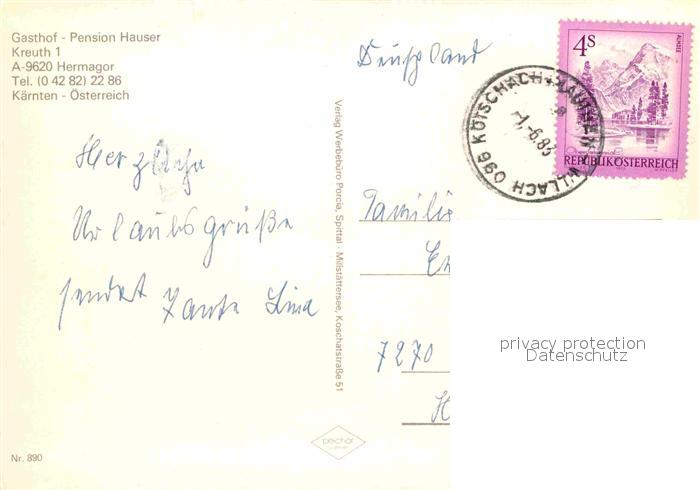 Gasthof - Pension Hauser
Kreuth 1
A-9620 Hermagor
Tel. (0 42 82) 22 86
Kärnten - Österreich
Deutschland
4S
ALMSEE
REPUBLIK ÖSTERREICH
096 KÖTSCHACH-MAUTHEN-VILLACH
-1.-6.83
Herzliche
Urlaubsgrüße
sendet Tante Lina
Verlag Werbebüro Porcia, Spittal - Millstättersee, Koschatstraße 51
Familie
7270
privacy protection
Datenschutz
pechar
Nr. 890